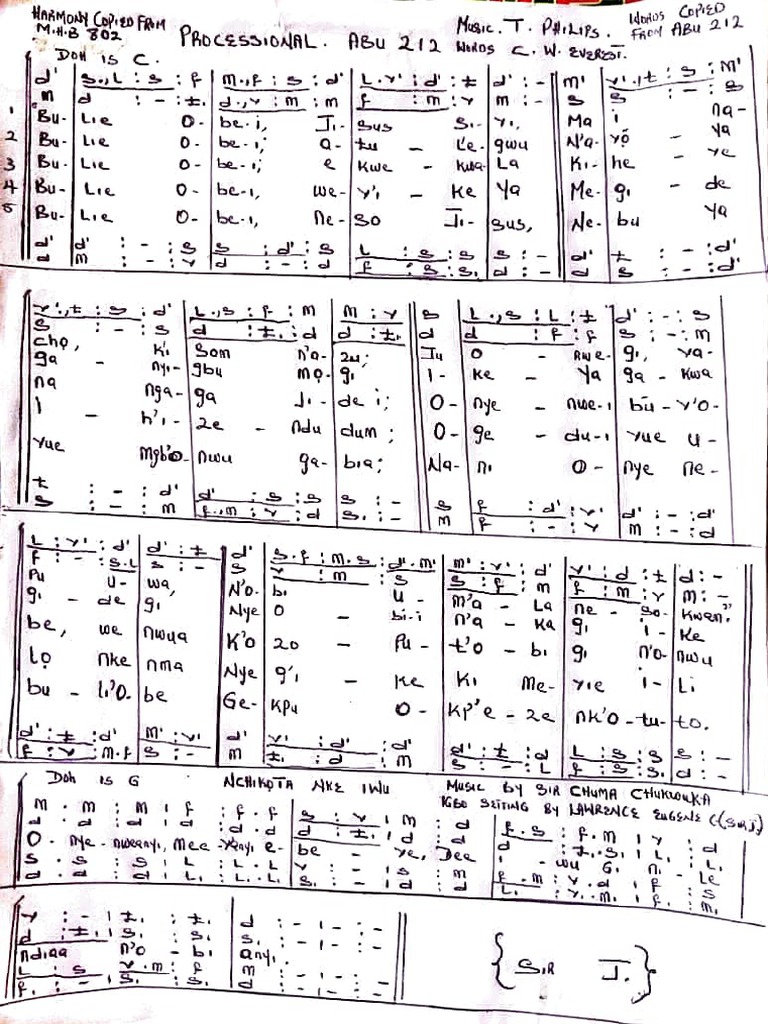 HARMONY COPIED FROM
M.H.B 802
PROCESSIONAL. ABU 212
MUSIC. T. PHILIPS.
WORDS C. W. EVEREST.
WORDS COPIED
FROM ABU 212
DOH IS C.
d' | s., L : s : f | m., f : s : d' | L . r' : d' : t | d' : - | m' | r'., t : s : m'
m | d : - : t, | d., r : m : m | f : m : r | m : - | s | s : - : s
1 Bu- Lie O- be-i, JI- sus SI- ri, Ma i na-
2 Bu- Lie O- be-i, a- tu - Le- gwu N'a- rọ - ya
3 Bu- Lie O- be-i; e kwe - kwa- La Ki- he - ye
4 Bu- Lie O- be-i, we- r'i - ke Ya Me- gi - de
5 Bu- Lie O- be-i, ne- so JI- sus, Ne- bu ya
d' | d' : - : s | s : d' : s | L : s : s | s : - | d' | t : - : d'
d | m : - : r | d : - : d | f : s : s, | d : - | d | s : - : d'
r'., t : s : d' | L., s : f : m | m : r | s | L., s : L : t | d' : - : s
s : - : s | d : t, : d | d : t, | d | d : f : f | s : - : m
chọ, k'i som n'a- zu; Ju O - nwe- gi, ya-
ga nyi- gbu mọ- gi I- ke - ya ga - kwa
na nga- ga JI- de i; O- nye - nwe-i bu - r'o-
I - h'i- ze - ndu dum; O- ge - du-i rue u-
rue mgb'o- nwu ga- bia; Na- ni O- nye ne-
t : - : d' | d' : s : s | s : - | s | f : d' : r' | d' : - : d'
s : - : m | f., m : r : d | s, : - | m | f : - : r | m : - : d
L : r' : d' | d' : t | d' | s . f : m . s : d' . m' | m' : r' : d' | r' : d : t | d : -
f : - : s.L | s : - | d | r : m : s | s : f : m | f : m : r | m : -
Pu u- wa, N'O- bi u- m'a - La ne - so- kwan?
gi - de gi Nye O - bi-i n'a - ka gi I- ke
be, we nwua K'O zo - Pu- t'o - bi gi n'o- nwu
Lọ nke nma Nye g'i - ke ki me- rie I- Li
bu - Li'O- be Ge- kpu O- kp'e - ze nk'o - tu- to.
d' : t : d' | m' : r' | d' | r' : d' : d' | d' : t : d | L : s : s | s : -
f : r : m.f | s : - | m | t, : d : m | s : - : L | f : s : s, | d : -
DOH IS G NCHIKOTA NKE IWU MUSIC BY SIR CHUMA CHUKWUKA
IGBO SETTING BY LAWRENCE EUGENE (SIR J)
m . m : m | f : f . f | s : r | m : d | f . s : f . m | r : d
d . d : d | d : d . d | d : t, | d : d | d : t, . s, | L, : L,
O- nye- nweanyi, mee - e- be - re, Dee I - wu Gi ni - Le
s . s : s | L : L . L | r : - | s : m | f . m : r . d | f : s
d . d : d | L, : L, . L, | s, : - | d : d | L, : r, . m, | f, : m,
r : - | t, : t, | d : - | - : -
d : t, | s, : s, | s, : - | - : -
ndiaa n'o - bi anyi.
L : s | r . m : f | m : - | - : -
f, : - | s, : s, | d : - | - : -
{ SIR J. }